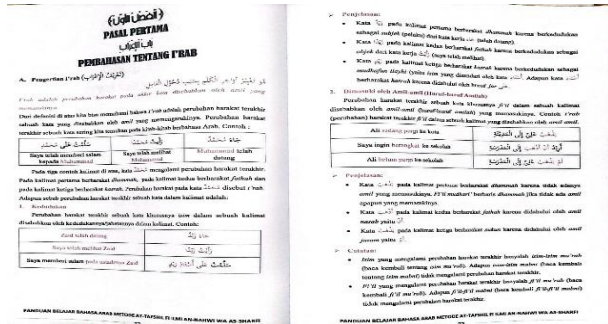 ﴿الفصل الأول﴾
PASAL PERTAMA
باب الإعراب
PEMBAHASAN TENTANG I'RAB
A. Pengertian I'rab
هو تغيير أواخر الكلم بسبب دخول العامل
I'rab adalah perubahan harakat pada akhir kata disebabkan oleh amil yang memasukinya
Dari definisi di atas kita bisa memahami bahwa I'rab adalah perubahan harakat terakhir
sebuah kata yang disebabkan oleh amil yang memasukinya. Perubahan harakat
terakhir sebuah kata sering kita temukan pada kitab-kitab berbahasa Arab. Contoh :
سلمت على محمد رأيت محمدا جاء محمد
Saya telah memberi salam kepada Muhammad
Saya telah melihat Muhammad
Muhammad telah datang
Pada tiga contoh kalimat di atas, kata محمد mengalami perubahan harakat terakhir.
Pada kalimat pertama berharakat dhammah, pada kalimat kedua berharakat fathah dan
pada kalimat ketiga berharakat kasrah. Perubahan harakat pada kata محمد disebut i'rab.
Adapun sebab perubahan harakat terakhir sebuah kata dalam kalimat adalah:
1. Kedudukan
Perubahan harakat terakhir sebuah kata khususnya isim dalam sebuah kalimat
disebabkan oleh kedudukannya/jabatannya dalam kalimat. Contoh:
Zaid telah datang جاء زيد
Saya telah melihat Zaid رأيت زيدا
Saya memberi salam pada saudaranya Zaid سلمت على أخ زيد
PANDUAN BELAJAR BAHASA ARAB METODE AT-TAFSHIL FI ILMI AN-NAHWI WA AS-SHARFI
Penjelasan:
Kata زيد pada kalimat pertama berharakat dhammah karena berkedudukan
sebagai subjek (pelaku) dari kata kerja جاء (telah datang).
Kata زيدا pada kalimat kedua berharakat fathah karena berkedudukan sebagai
objek dari kata kerja رأيت (saya telah melihat).
Kata زيد pada kalimat ketiga berharakat kasrah karena berkedudukan sebagai
berharakat kasrah karena didahului oleh huruf jar على.
2. Dimasuki oleh Amil-amil (Huruf-huruf Amilah)
Perubahan harakat terakhir sebuah kata khususnya fi'il dalam sebuah kalimat
disebabkan oleh amil-amil (huruf-huruf amilah) yang memasukinya. Contoh i'rab
(perubahan) harakat terakhir fi'il dalam sebuah kalimat yang disebabkan oleh amil-amil:
Ali sedang pergi ke kota
Saya ingin berangkat ke sekolah
Ali belum pergi ke sekolah
Penjelasan:
Kata يذهب pada kalimat pertama berharakat dhammah karena tidak adanya
amil yang memasukinya. Fi'il mudhari' berharis dhammah jika tidak ada amil
apapun yang memasukinya.
Kata أذهب pada kalimat kedua berharakat fathah karena didahului oleh amil
nasab yaitu أن.
Kata يذهب pada kalimat ketiga berharakat sukun karena didahului oleh amil
jazam yaitu لم.
Catatan:
Isim yang mengalami perubahan harakat terakhir hanyalah isim-isim mu'rab
(baca kembali tentang isim mu'rab). Adapun isim-isim mabni (baca kembali
tentang isim mabni) tidak mengalami perubahan harakat terakhir.
Fi'il yang mengalami perubahan harakat terakhir hanyalah fi'il-fi'il mu'rab
(baca kembali fi'il mu'rab). Adapun fi'il-fi'il mabni (baca kembali fi'il-fi'il mabni)
tidak mengalami perubahan harakat terakhir.
PANDUAN BELAJAR BAHASA ARAB METODE AT-TAFSHIL FI ILMI AN-NAHWI WA AS-SHARFI